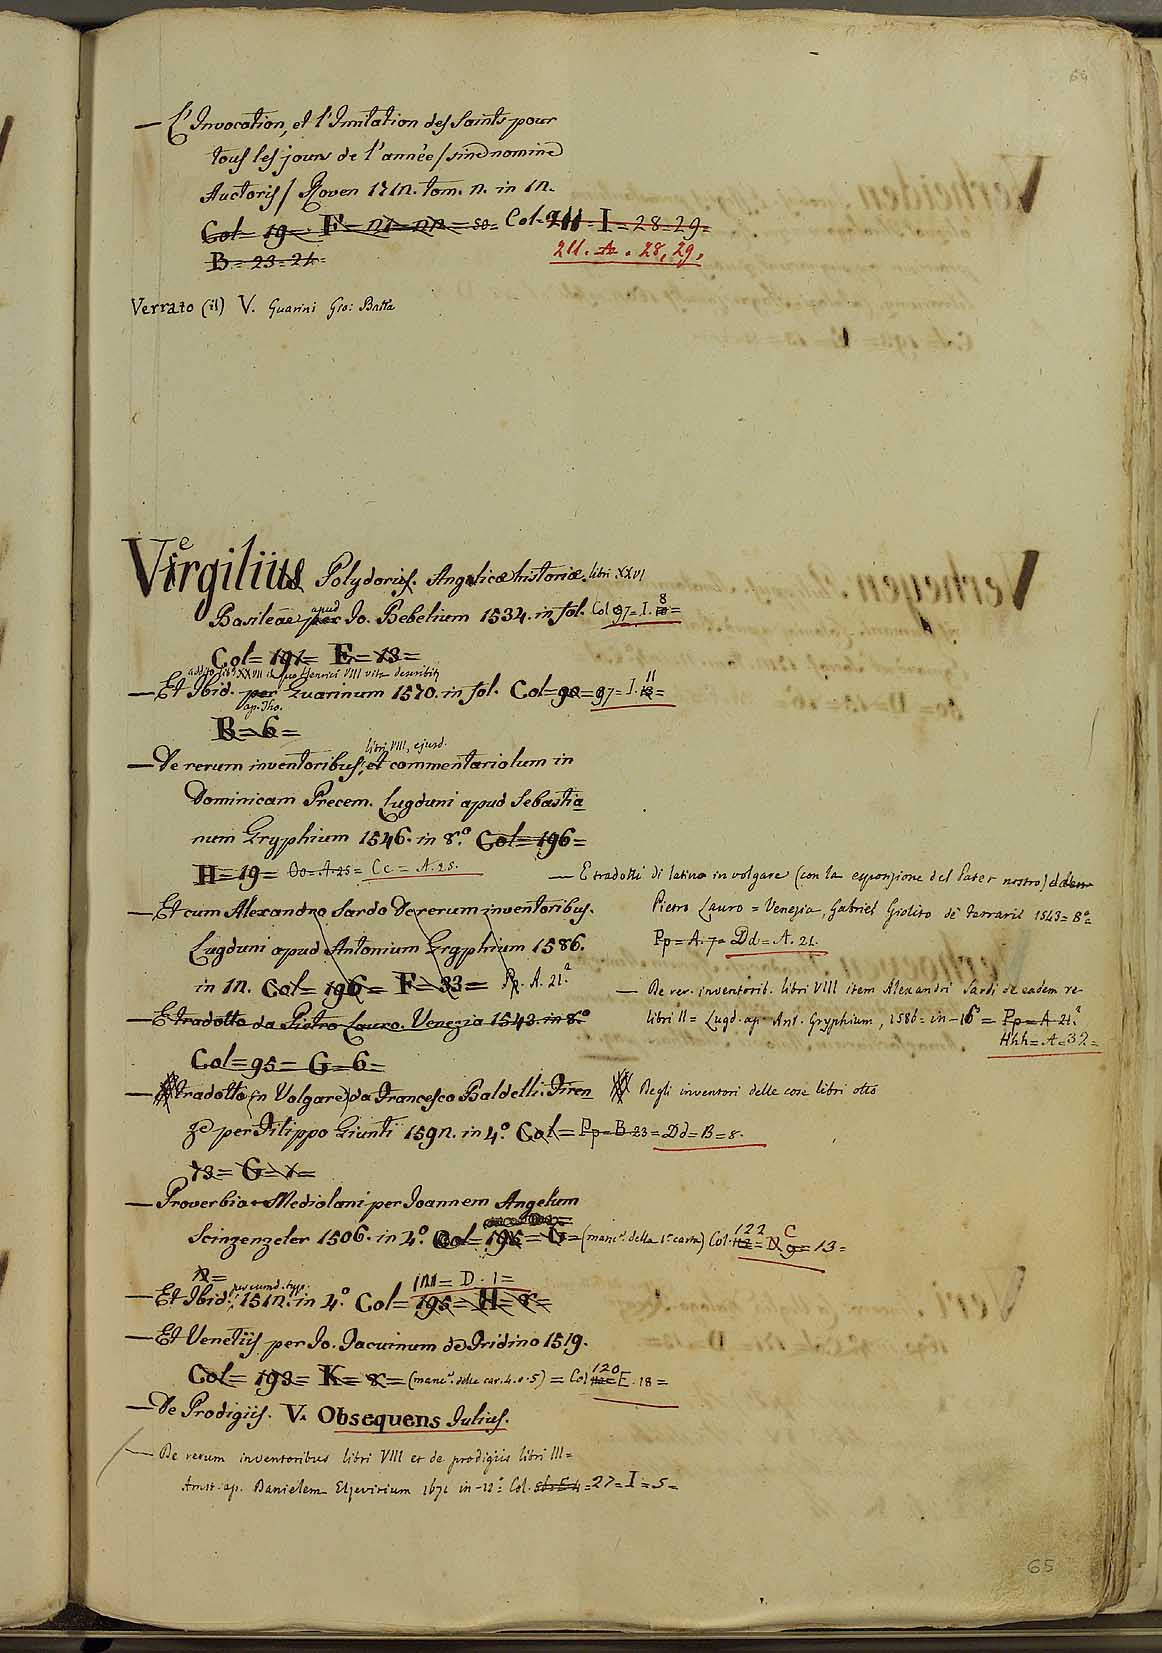 64
— L'Invocation, et l'Imitation des Saints pour
tous les jours de l'année / sine nomine
Auctoris / Roven 1712. tom. 2. in 12.
Col= 19= F= 21=22= 50= Col= 211= I= 28=29=
B= 23=24=
211. A. 28, 29,
Verrato (il) V. Guarini Gio: Batta
Vergilius Polydorus. Angelicæ historiæ. libri XXVI
Basileæ apud per Io. Bebelium 1534. in fol. Col 97= I. 8 10=
Col= 191= E= 13=
— Et Ibid. per Guarinum 1570. in fol. Col= 90= 97= I. 11 12=
ap. Tho.
B= 6=
libri VIII, ejusd.
— De rerum inventoribus; et commentariolum in
Dominicam Precem. Lugduni apud Sebastia
num Gryphium 1546. in 8.° Col= 196=
H= 19= Oo= A. 25= Cc= A. 25.
— E tradotti di latino in volgare (con la esposizione del Pater nostro) da
Pietro Lauro = Venezia, Gabriel Giolito de' Ferrarii 1543= 8°=
Pp= A. 7= Dd= A. 21.
— Et cum Alexandro Sardo De rerum inventoribus.
Lugduni apud Antonium Gryphium 1586.
in 12. Col= 196= F= 33= Pp. A. 21.²
— De rer. inventorib. libri VIII item Alexandri Sardi de eadem re
libri II= Lugd. ap. Ant. Gryphium, 1586= in-16°= Pp= A 21.²
Hhh= A= 32=
— E tradotto da Pietro Lauro. Venezia 1543. in 8.°
Col= 95= G= 6=
— tradotto (in Volgare) da Francesco Baldelli. Firen
Degli inventori delle cose libri otto
ze per Filippo Giunti 1592. in 4.° Col= Pp= B 23= Dd= B= 8.
73= G= 1=
— Proverbia Mediolani per Ioannem Angelum
Scinzenzeler 1506. in 4.° Col= 195= G= (manc.e della 1.a carta) Col. 122 = C 13=
2=
— Et Ibid. per eumd. typ. 1512. in 4.° Col= 195= H= 8=
111= D. 1=
— Et Venetiis per Io. Tacuinum de Tridino 1519.
Col= 193= K= 8= (manc.e delle car. 4. e 5) = Col 120 E. 18=
— De Prodigiis. V. Obsequens Iulius.
— De rerum inventoribus libri VIII et de prodigiis libri III=
Amst. ap. Danielem Elzevirium 1671 in-12.° Col. 27= I= 5=
65